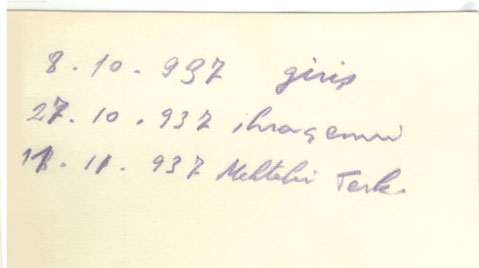 8.10.937 giriş
27.10.937 ihraç emri
11.11.937 Mektebi Terk.